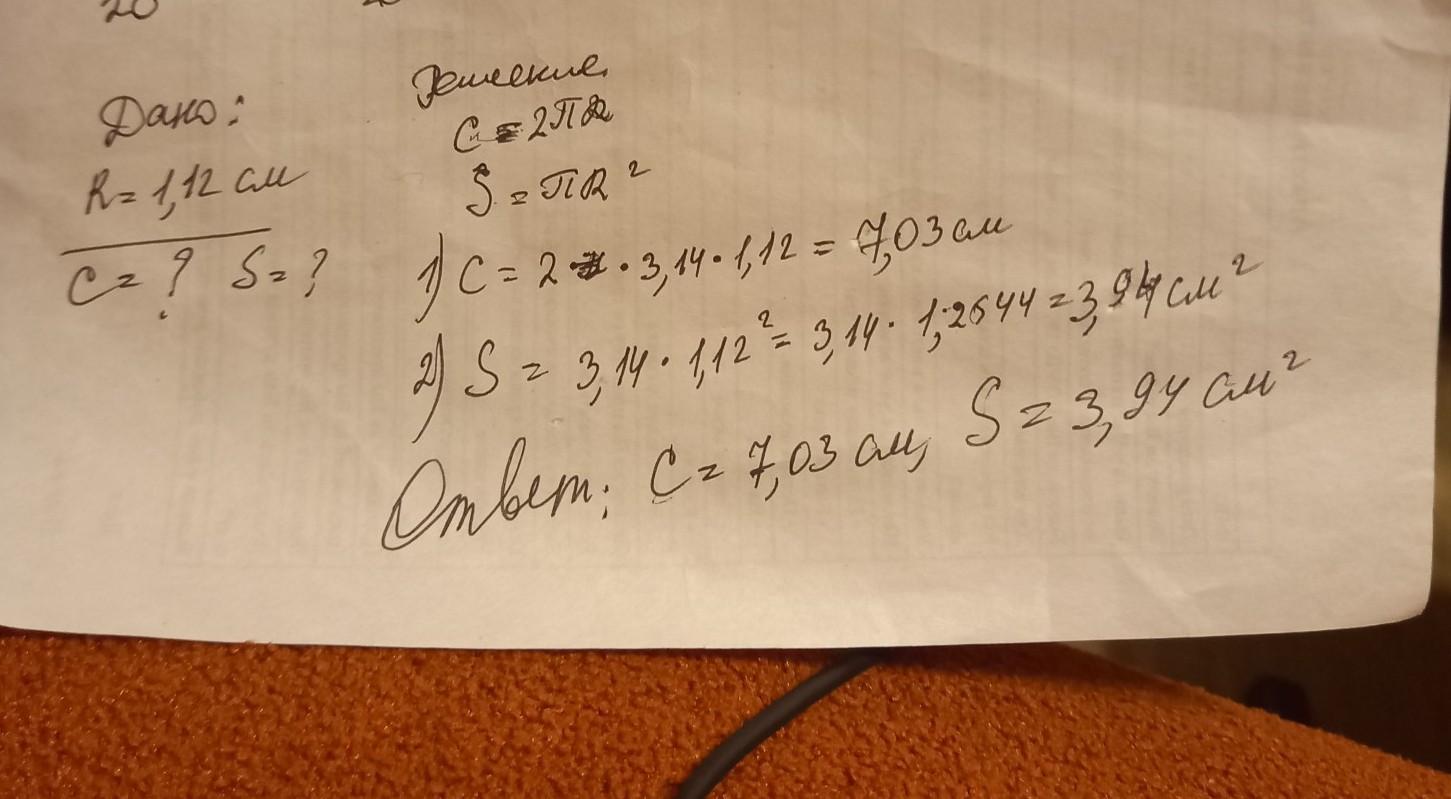 20
Дано:
R = 1,12 см
C = ? S = ?
Решение.
C = 2πR
S = πR²
1) C = 2 · 3,14 · 1,12 = 7,03 см
2) S = 3,14 · 1,12² = 3,14 · 1,2544 = 3,94 см²
Ответ: C = 7,03 см, S = 3,94 см²